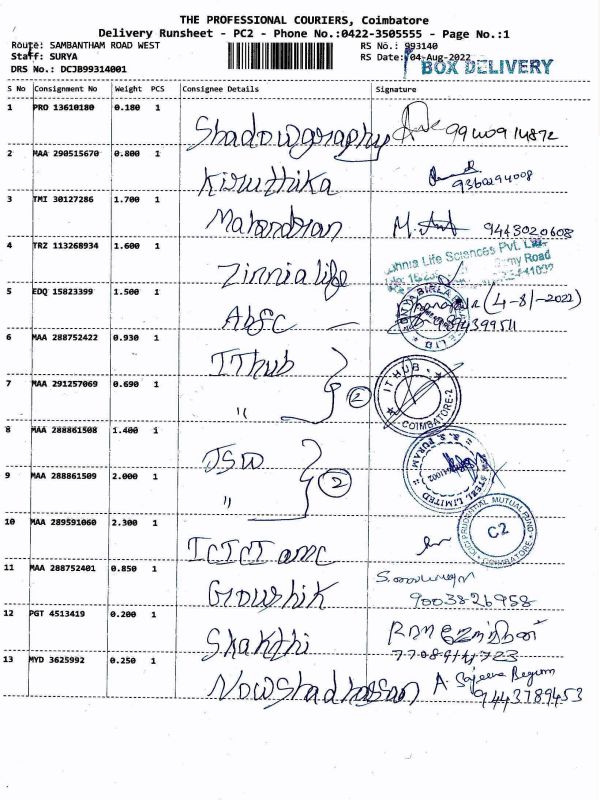 THE PROFESSIONAL COURIERS, Coimbatore
Delivery Runsheet - PC2 - Phone No.:0422-3505555 - Page No.:1
Route: SAMBANTHAM ROAD WEST RS No.: 993140
Staff: SURYA RS Date: 04-Aug-2022
DRS No.: DCJB99314001 BOX DELIVERY
S No Consignment No Weight PCS Consignee Details Signature
1 PRO 13610180 0.180 1 Shadowgraphy
2 MAA 290515670 0.800 1 Kiruthika 9360294008
3 TMI 30127286 1.700 1 Mahendran 9443020608
4 TRZ 113268934 1.600 1 Zinnia life
Zinnia Life Sciences Pvt. Ltd
5 EDQ 15823399 1.500 1 ABFC (4-8-2022)
9894399511
6 MAA 288752422 0.930 1 IThub
7 MAA 291257069 0.690 1 " 2 IT HUB COIMBATORE-2
8 MAA 288861508 1.400 1 JSW
9 MAA 288861509 2.000 1 " 2 STEEL LIMITED R. S. PURAM
10 MAA 289591060 2.300 1 ICICI amc PRUDENTIAL MUTUAL FUND C2 COIMBATORE
11 MAA 288752401 0.850 1 Gowshik
9003826958
12 PGT 4513419 0.200 1 Shakthi
13 MYD 3625992 0.250 1 Nowshad hassan A. Sajeena Begum
9443789453